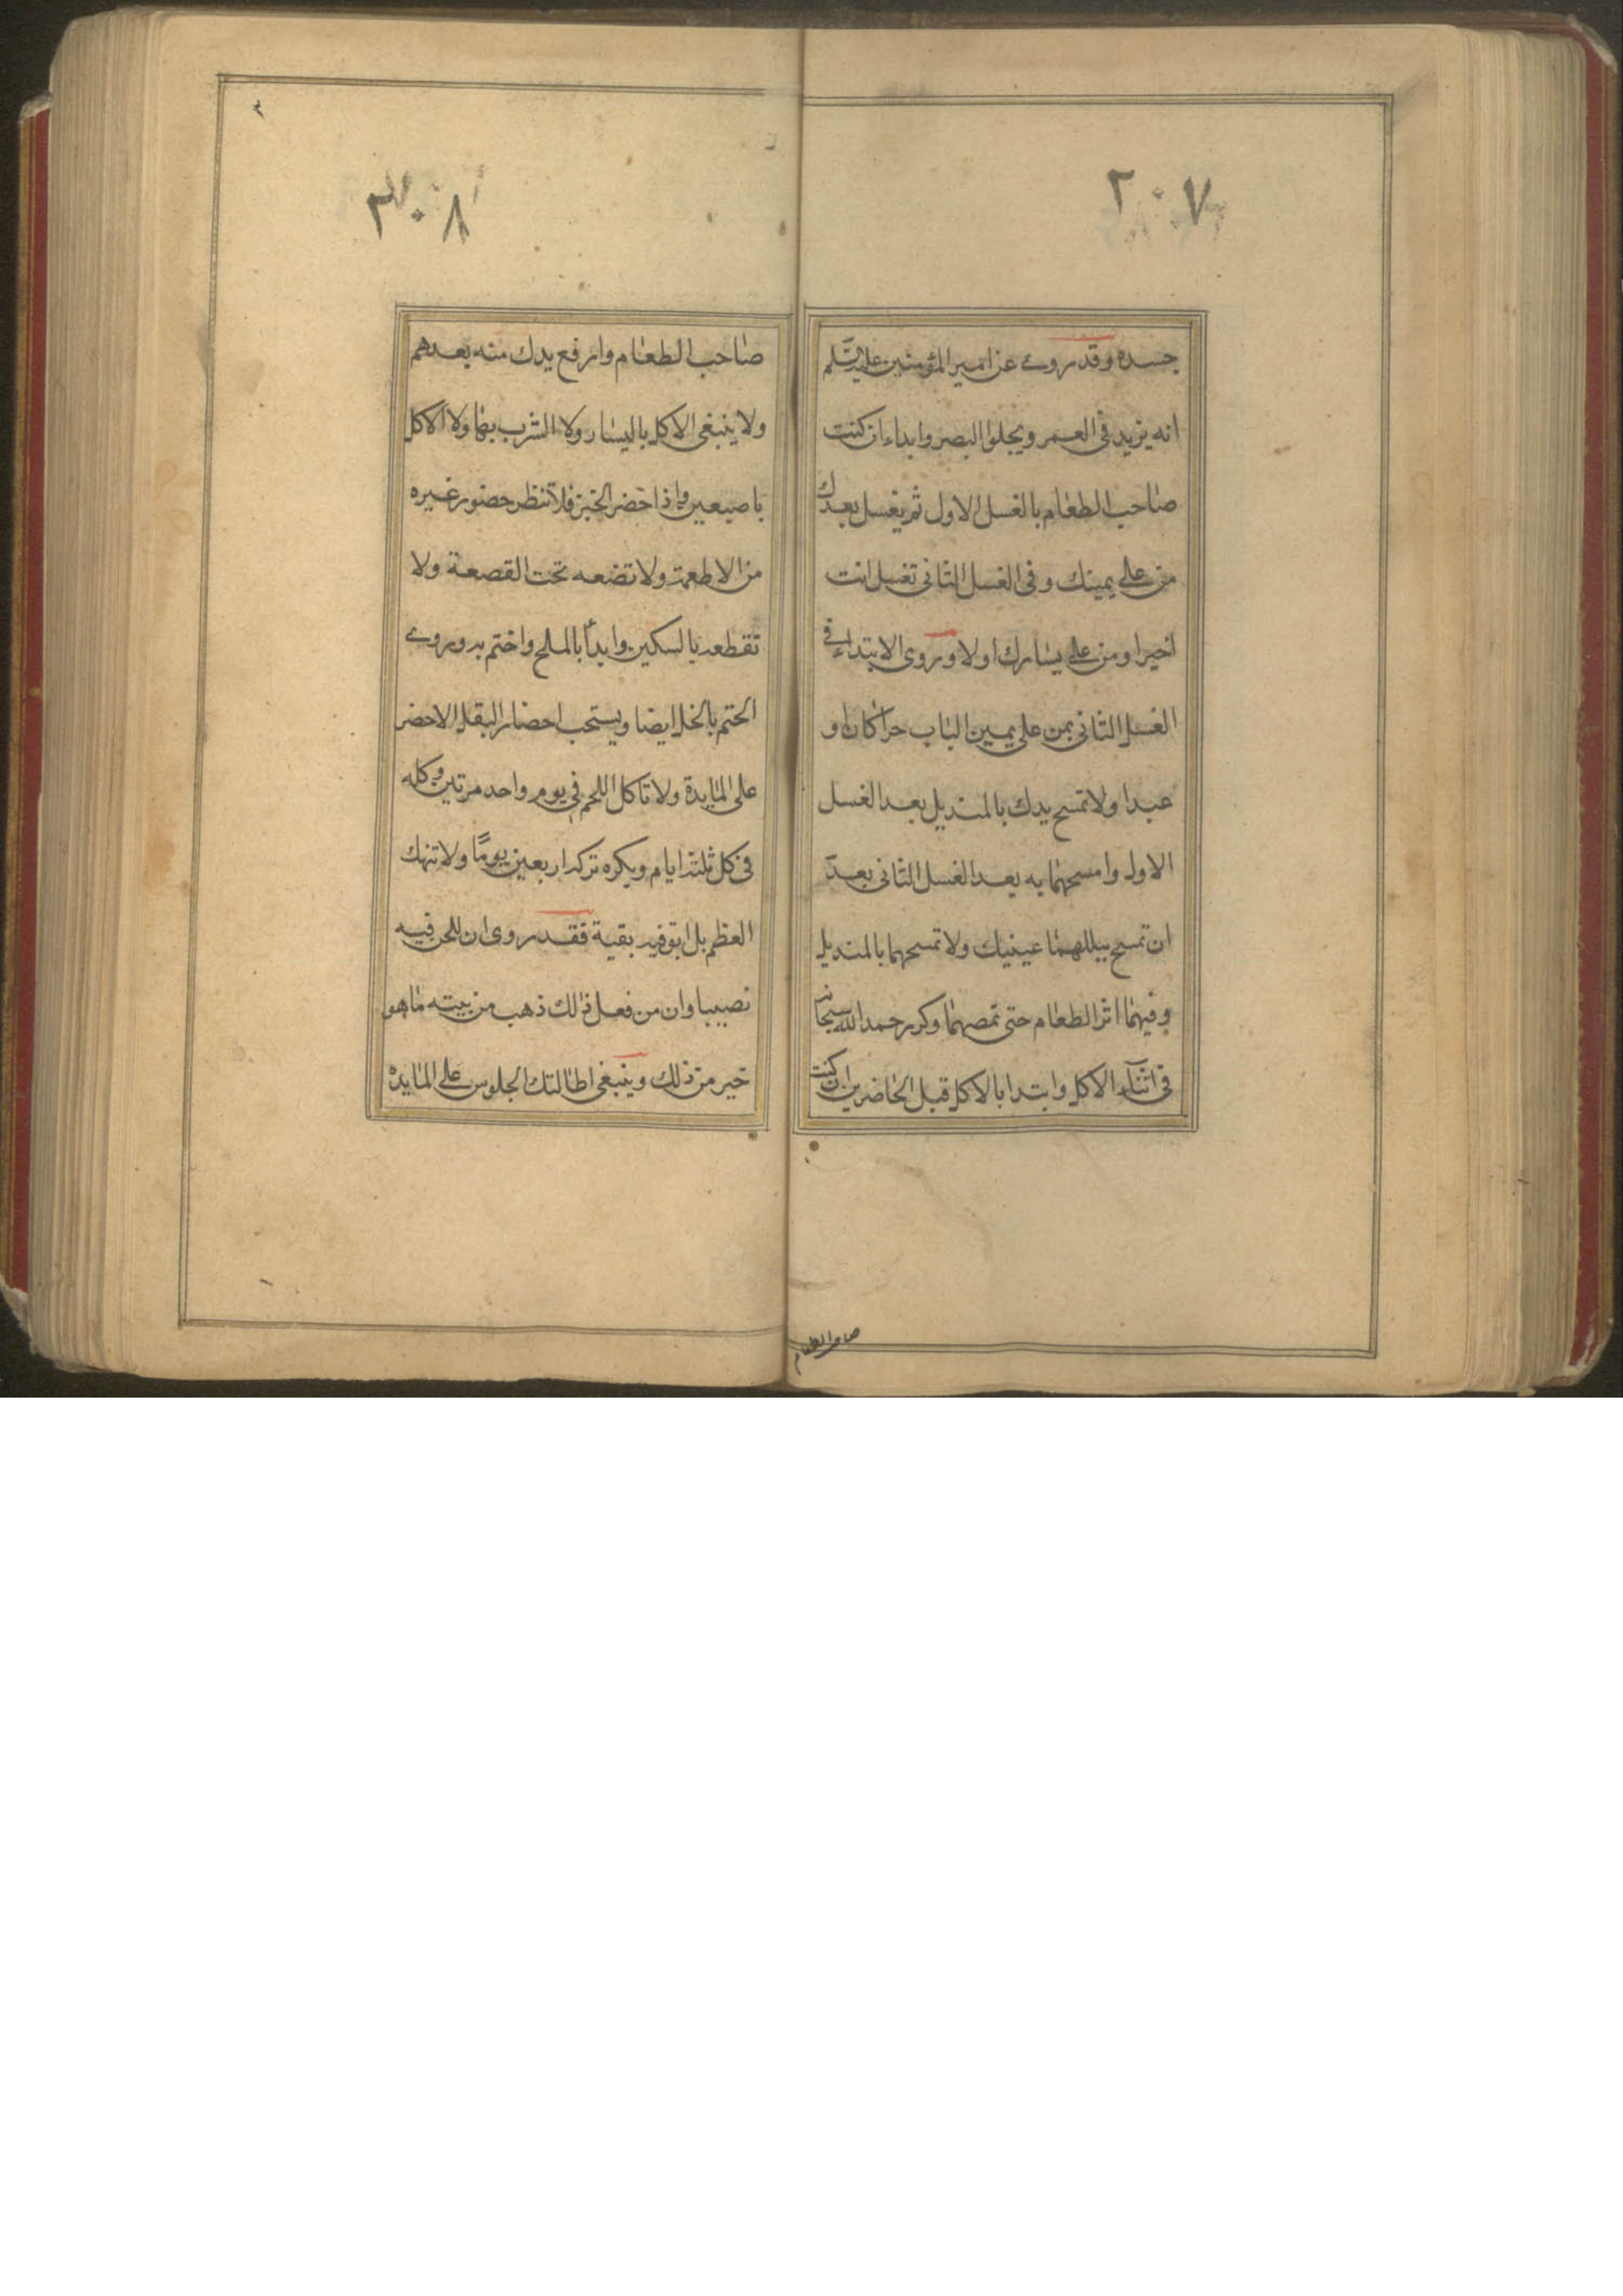 ٢٠٧
جسده وقد روى عن امير المؤمنين عليه السلم
انه يزيد فى العمر ويجلوا البصر وابداء ان كنت
صاحب الطعام بالغسل الاول ثم يغسل بعدك
من على يمينك وفى الغسل الثانى تغسل انت
اخيرا ومن على يسارك اولا وروى الابتداء فى
الغسل الثانى بمن على يمين الباب حرا كان او
عبدا ولا تمسح يدك بالمنديل بعد الغسل
الاول وامسحهما به بعد الغسل الثانى بعد
ان تمسح ببللهما عينيك ولا تمسحهما بالمنديل
وفيهما اثر الطعام حتى تمصهما وكرر حمد الله سبحانه
فى اثناء الاكل وابتدا بالاكل قبل الحاضرين ان كنت
صاحب الطعام
٣٠٨
صاحب الطعام وارفع يدك منه بعدهم
ولا ينبغى الاكل باليسار ولا الشرب بها ولا الاكل
باصبعين واذا حضر الخبز فلا تنظر حضور غيره
من الاطعمة ولا تضعه تحت القصعة ولا
تقطعه بالسكين وابدأ بالملح واختم به وروى
الختم بالخل ايضا ويستحب احضار البقل الاخضر
على المايدة ولا تاكل اللحم فى يوم واحد مرتين وكله
فى كل ثلثة ايام ويكره تركه اربعين يومًا ولا تنهك
العظم بل ابق فيه بقية فقد روى ان للجن فيه
نصيبا وان من فعل ذلك ذهب من بيته ما هو
خير من ذلك وينبغى اطالتك الجلوس على المايدة